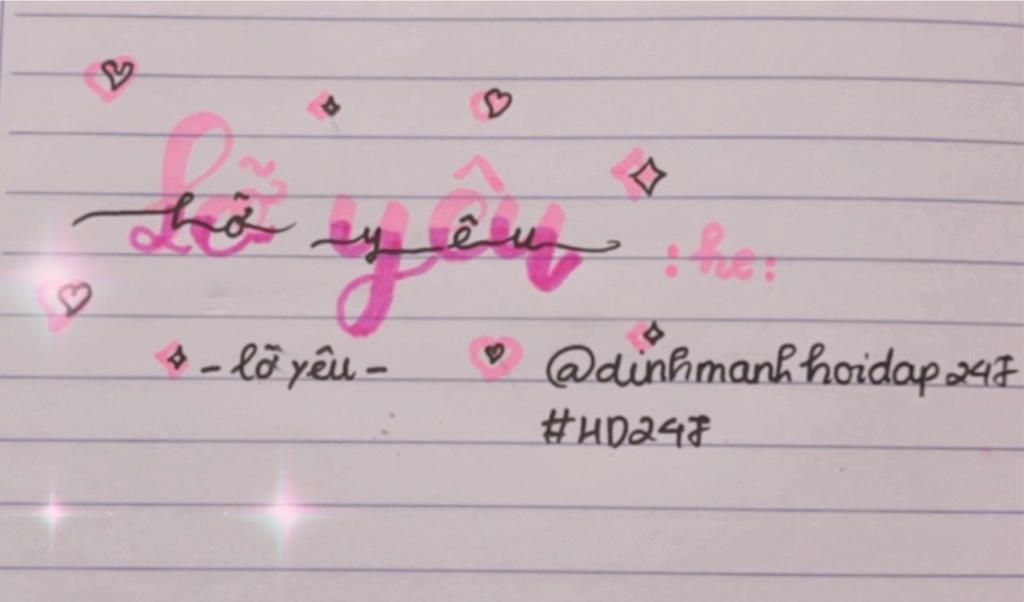 lỡ yêu
lỡ yêu :he:
- lỡ yêu - @dinhmanhhoidap247
#HD247